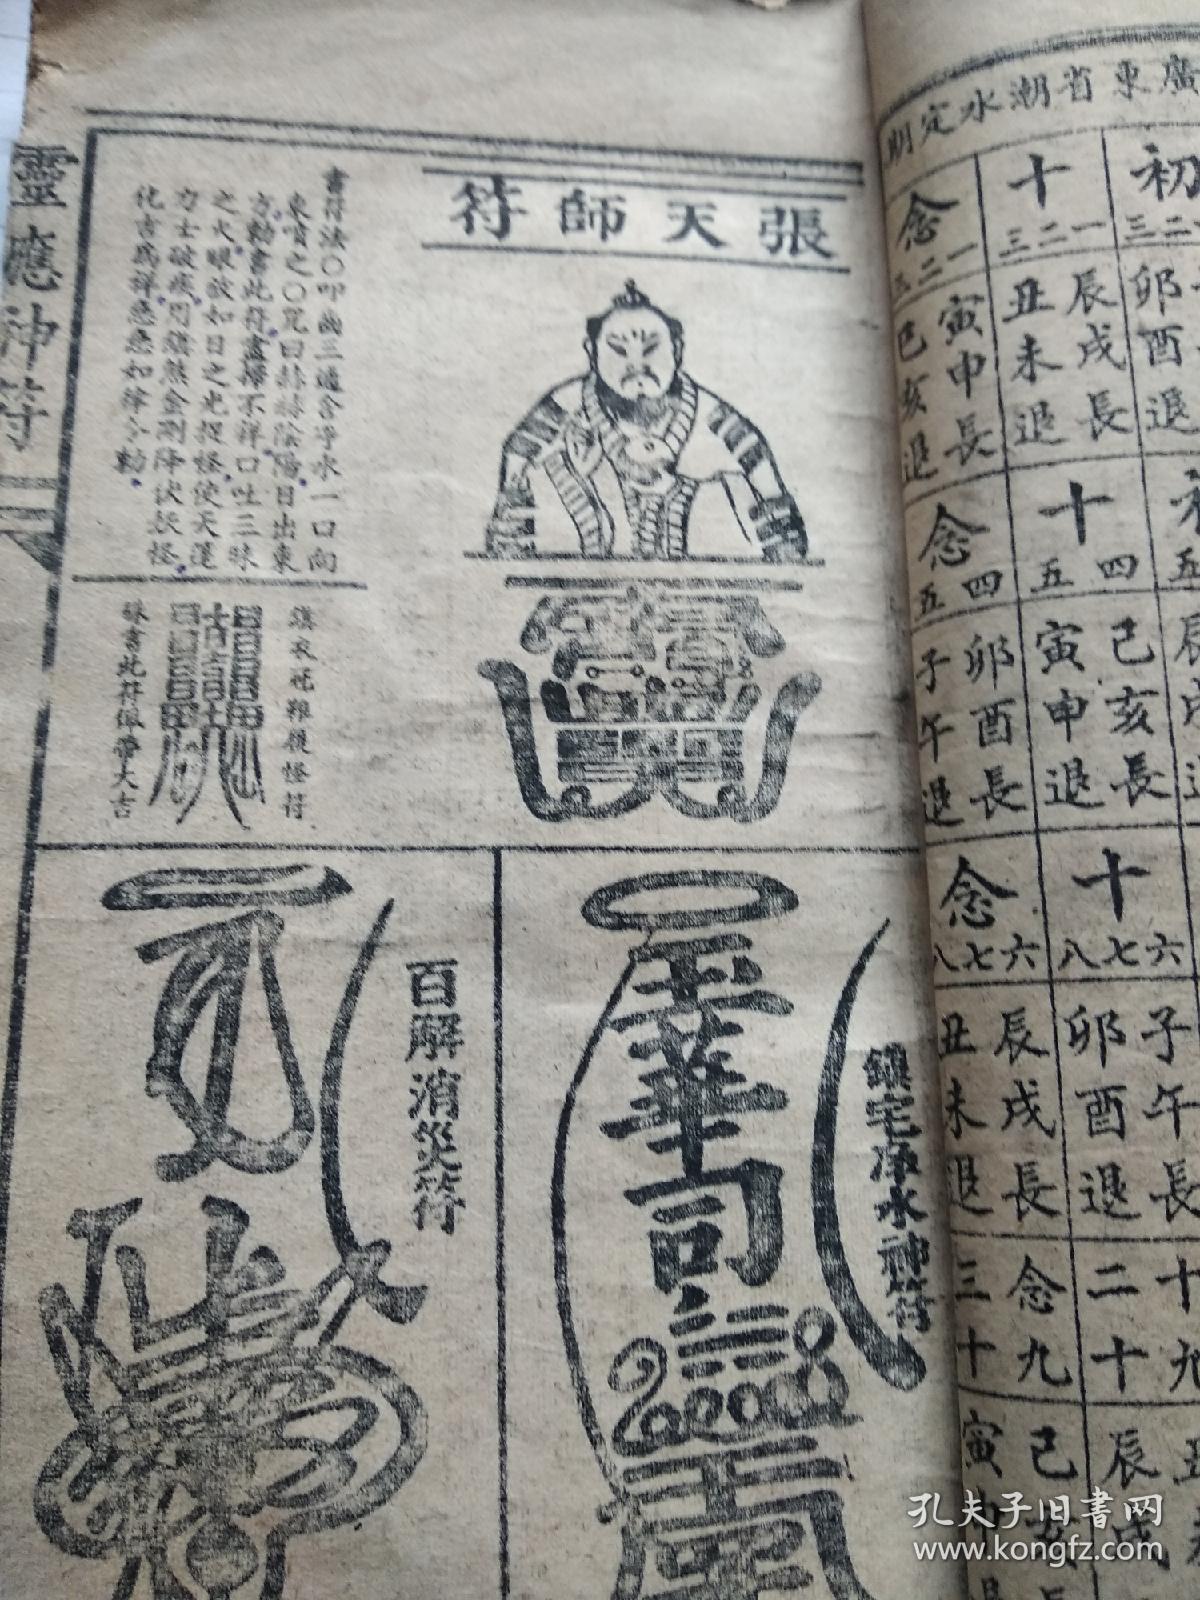 靈應神符
張天師符
書符法〇叩齒三通含淨水一口向
東噴之〇咒曰赫赫陰陽日出東
方勅書此符盡掃不祥口吐三昧
之火眼放如日之光捉怪使天蓬
力士破疾用鎮煞金剛降伏妖怪
化吉為祥急急如律令勅
鎮衣冠雞價怪符
硃書此符佩帶大吉
鎮宅淨水神符
百解消災符
廣東省潮水定期
初
三二
卯
酉
退
十
三二一
辰戌長
丑未退
念
三二一
寅申長
巳亥退
五
辰
十
五四
巳亥長
寅申退
念
五四
卯酉長
子午退
十
八七六
子午長
卯酉退
念
八七六
辰戌長
丑未退
十九
二十
念九
三十
辰戌
巳亥
寅申
孔夫子旧书网
www.kongfz.com